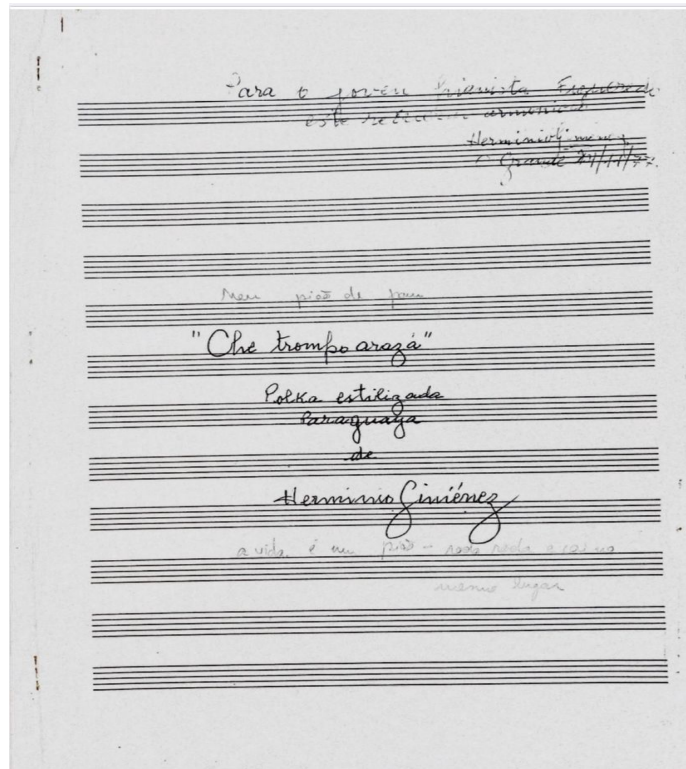 Para o joven pianista Figueredo
este armonico
Herminio Giménez
C Grande 29/11/77
Meu pião de pau
"Che trompo arazá"
Polka estilizada
Paraguaya
de
Herminio Giménez
a vida é um pião - roda roda e cai no
mesmo lugar